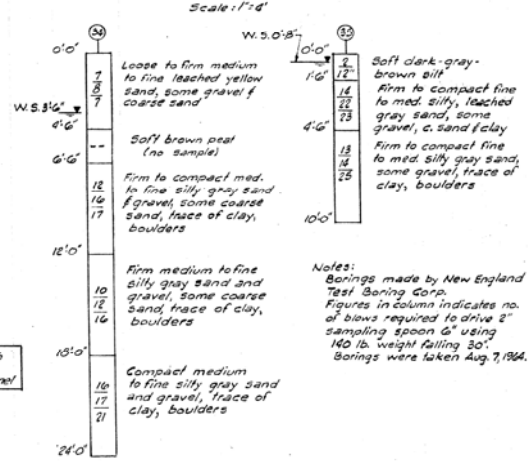 Scale: 1"=4'
34
0'-0"
7
8
7
Loose to firm medium
to fine leached yellow
sand, some gravel &
coarse sand
W.S. 3'-6"
4'-6"
--
Soft brown peat
(no sample)
6'-6"
12
16
17
Firm to compact med.
to fine silty gray sand
& gravel, some coarse
sand, trace of clay,
boulders
12'-0"
10
12
16
Firm medium to fine
silty gray sand and
gravel, some coarse
sand, trace of clay,
boulders
18'-0"
16
17
21
Compact medium
to fine silty gray sand
and gravel, trace of
clay, boulders
24'-0"
W.S. 0'-8"
35
0'-0"
2
12"
Soft dark-gray-
brown silt
1'-6"
14
22
23
Firm to compact fine
to med. silty, leached
gray sand, some
gravel, c. sand & clay
4'-6"
13
14
25
Firm to compact fine
to med. silty gray sand,
some gravel, trace of
clay, boulders
10'-0"
Notes:
Borings made by New England
Test Boring Corp.
Figures in column indicates no.
of blows required to drive 2"
sampling spoon 6" using
140 lb. weight falling 30".
Borings were taken Aug. 7, 1964.